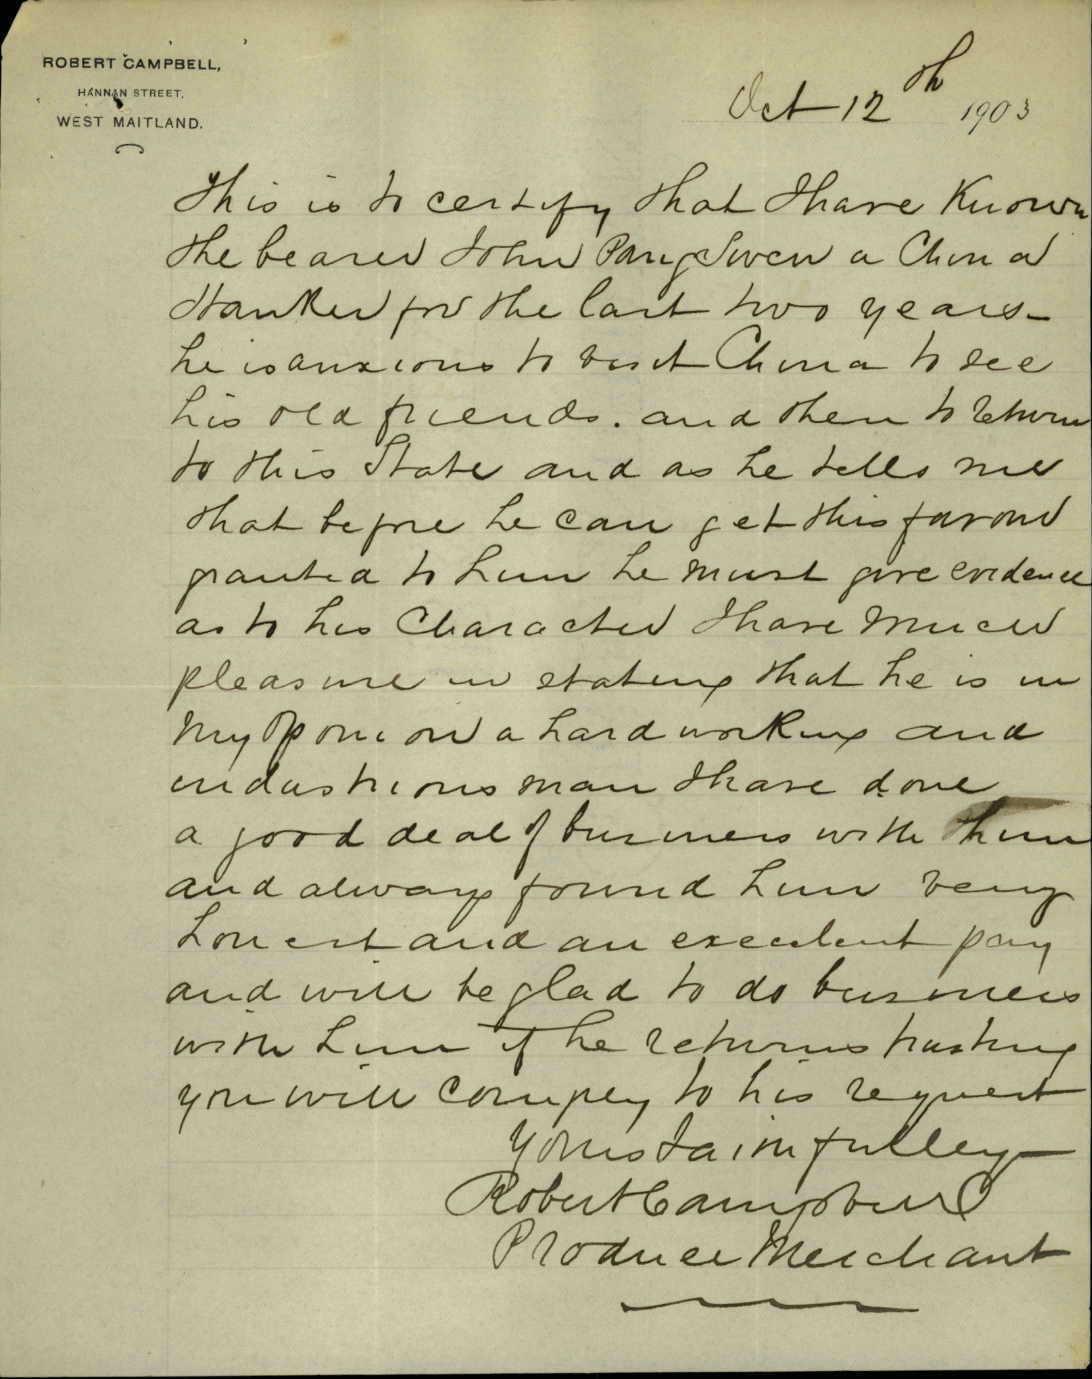 ROBERT CAMPBELL,
HANNAN STREET,
WEST MAITLAND.
Oct 12th 1903
This is to certify that I have Known
the bearer John Pang Swen a China
Hawker for the last two years –
he is anxious to visit China to see
his old friends. and then to return
to this State and as he tells me
that before he can get this favour
granted to him he must give evidence
as to his Character I have Much
pleasure in stating that he is in
My Oponion a hard working and
industrious man I have done
a good deal of business with him
and always found him very
honest and an excelent pay
and will be glad to do business
with him if he returns trusting
you will comply to his request
Yours Faithfulley
Robert Campbell
Produce Merchant